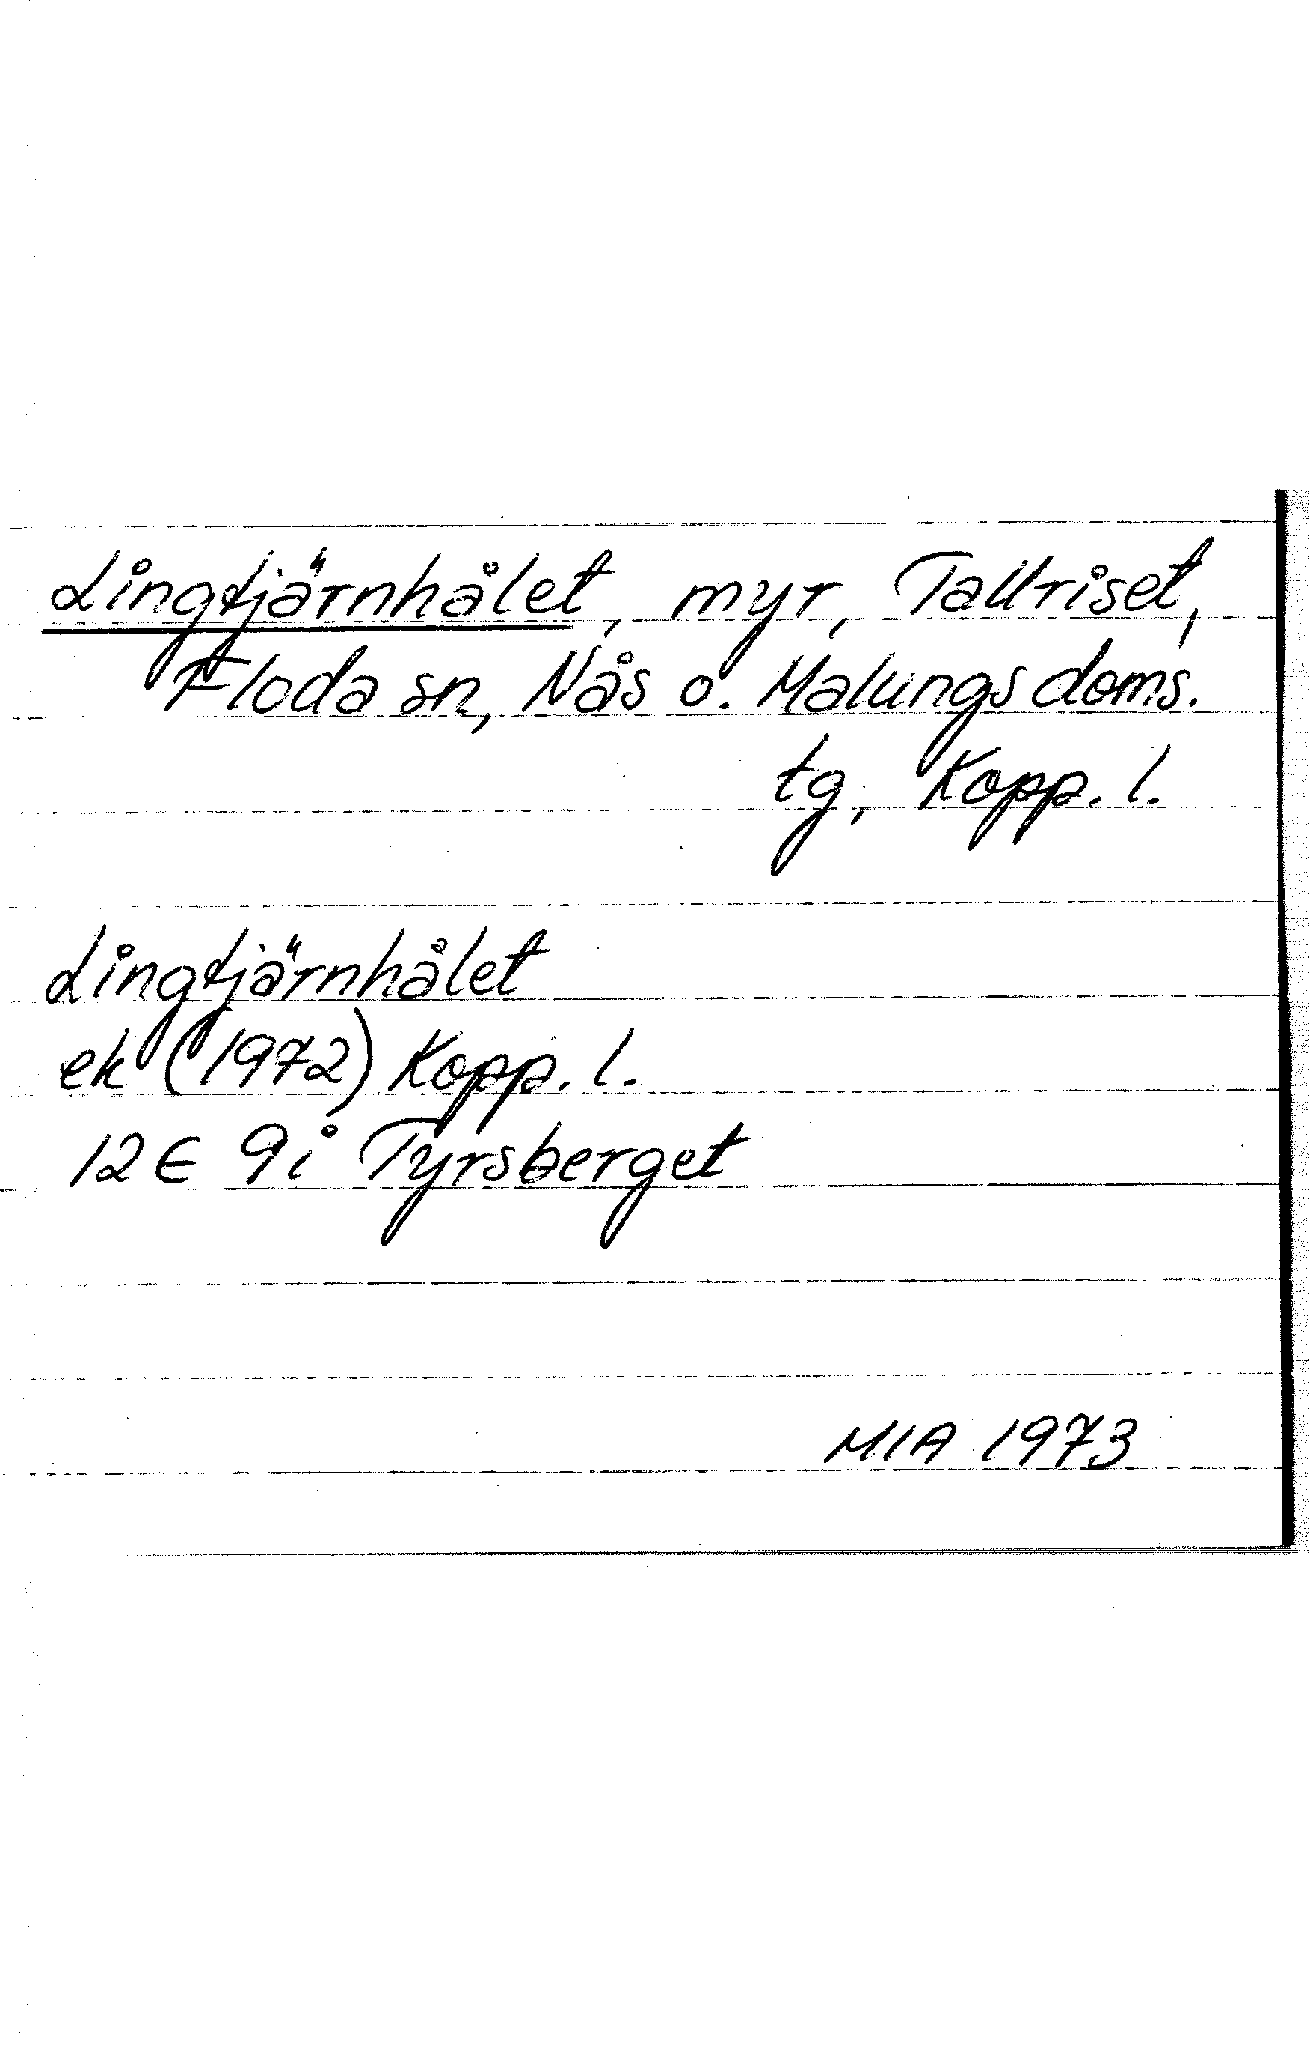 Lingtjärnhålet, myr, Tallriset,
Floda sn, Nås o. Malungs doms.
tg, Kopp. l.
Lingtjärnhålet
ek (1972) Kopp. l.
12E 9i Tyrsberget
MIA 1973